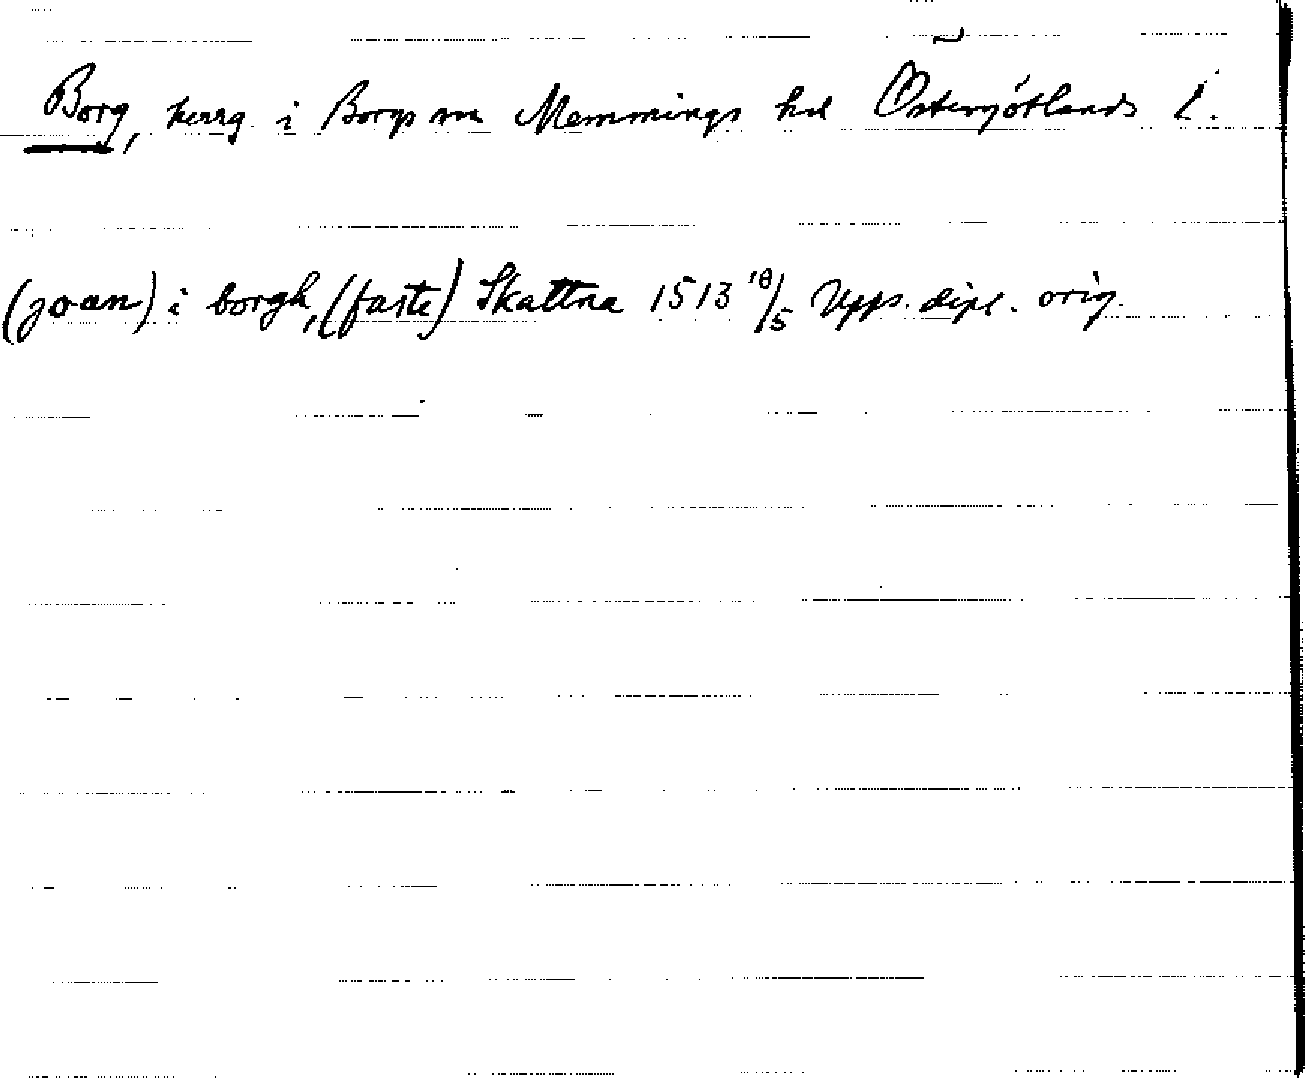 Borg, herrg i Borgs sn Memmings hd Östergötlands L.
(joan) i borgh, (faste) Skattna 1513 18/5 Upps. dipl. orig.